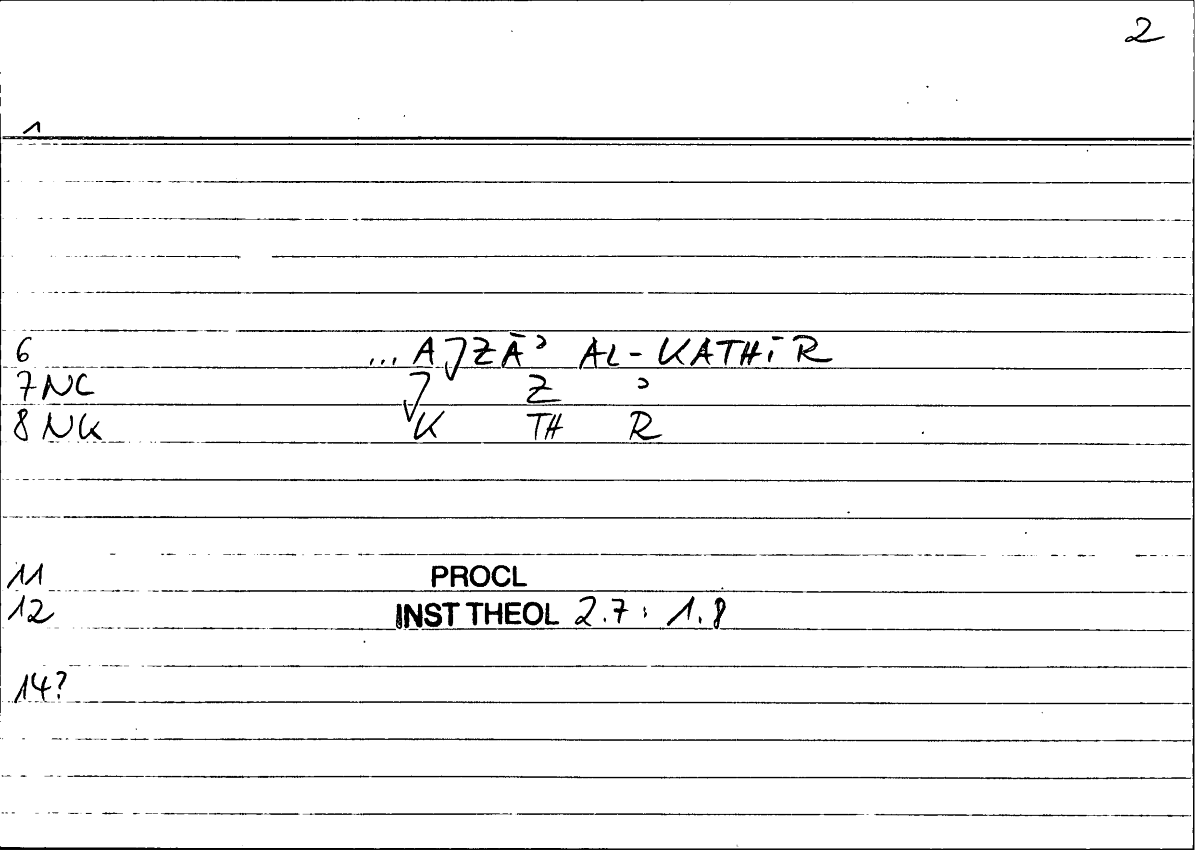 2
1
6 ... AJZĀʾ AL-KATHĪR
7 NC J Z ʾ
8 NK K TH R
11 PROCL
12 INST THEOL 2.7: 1.8
14?